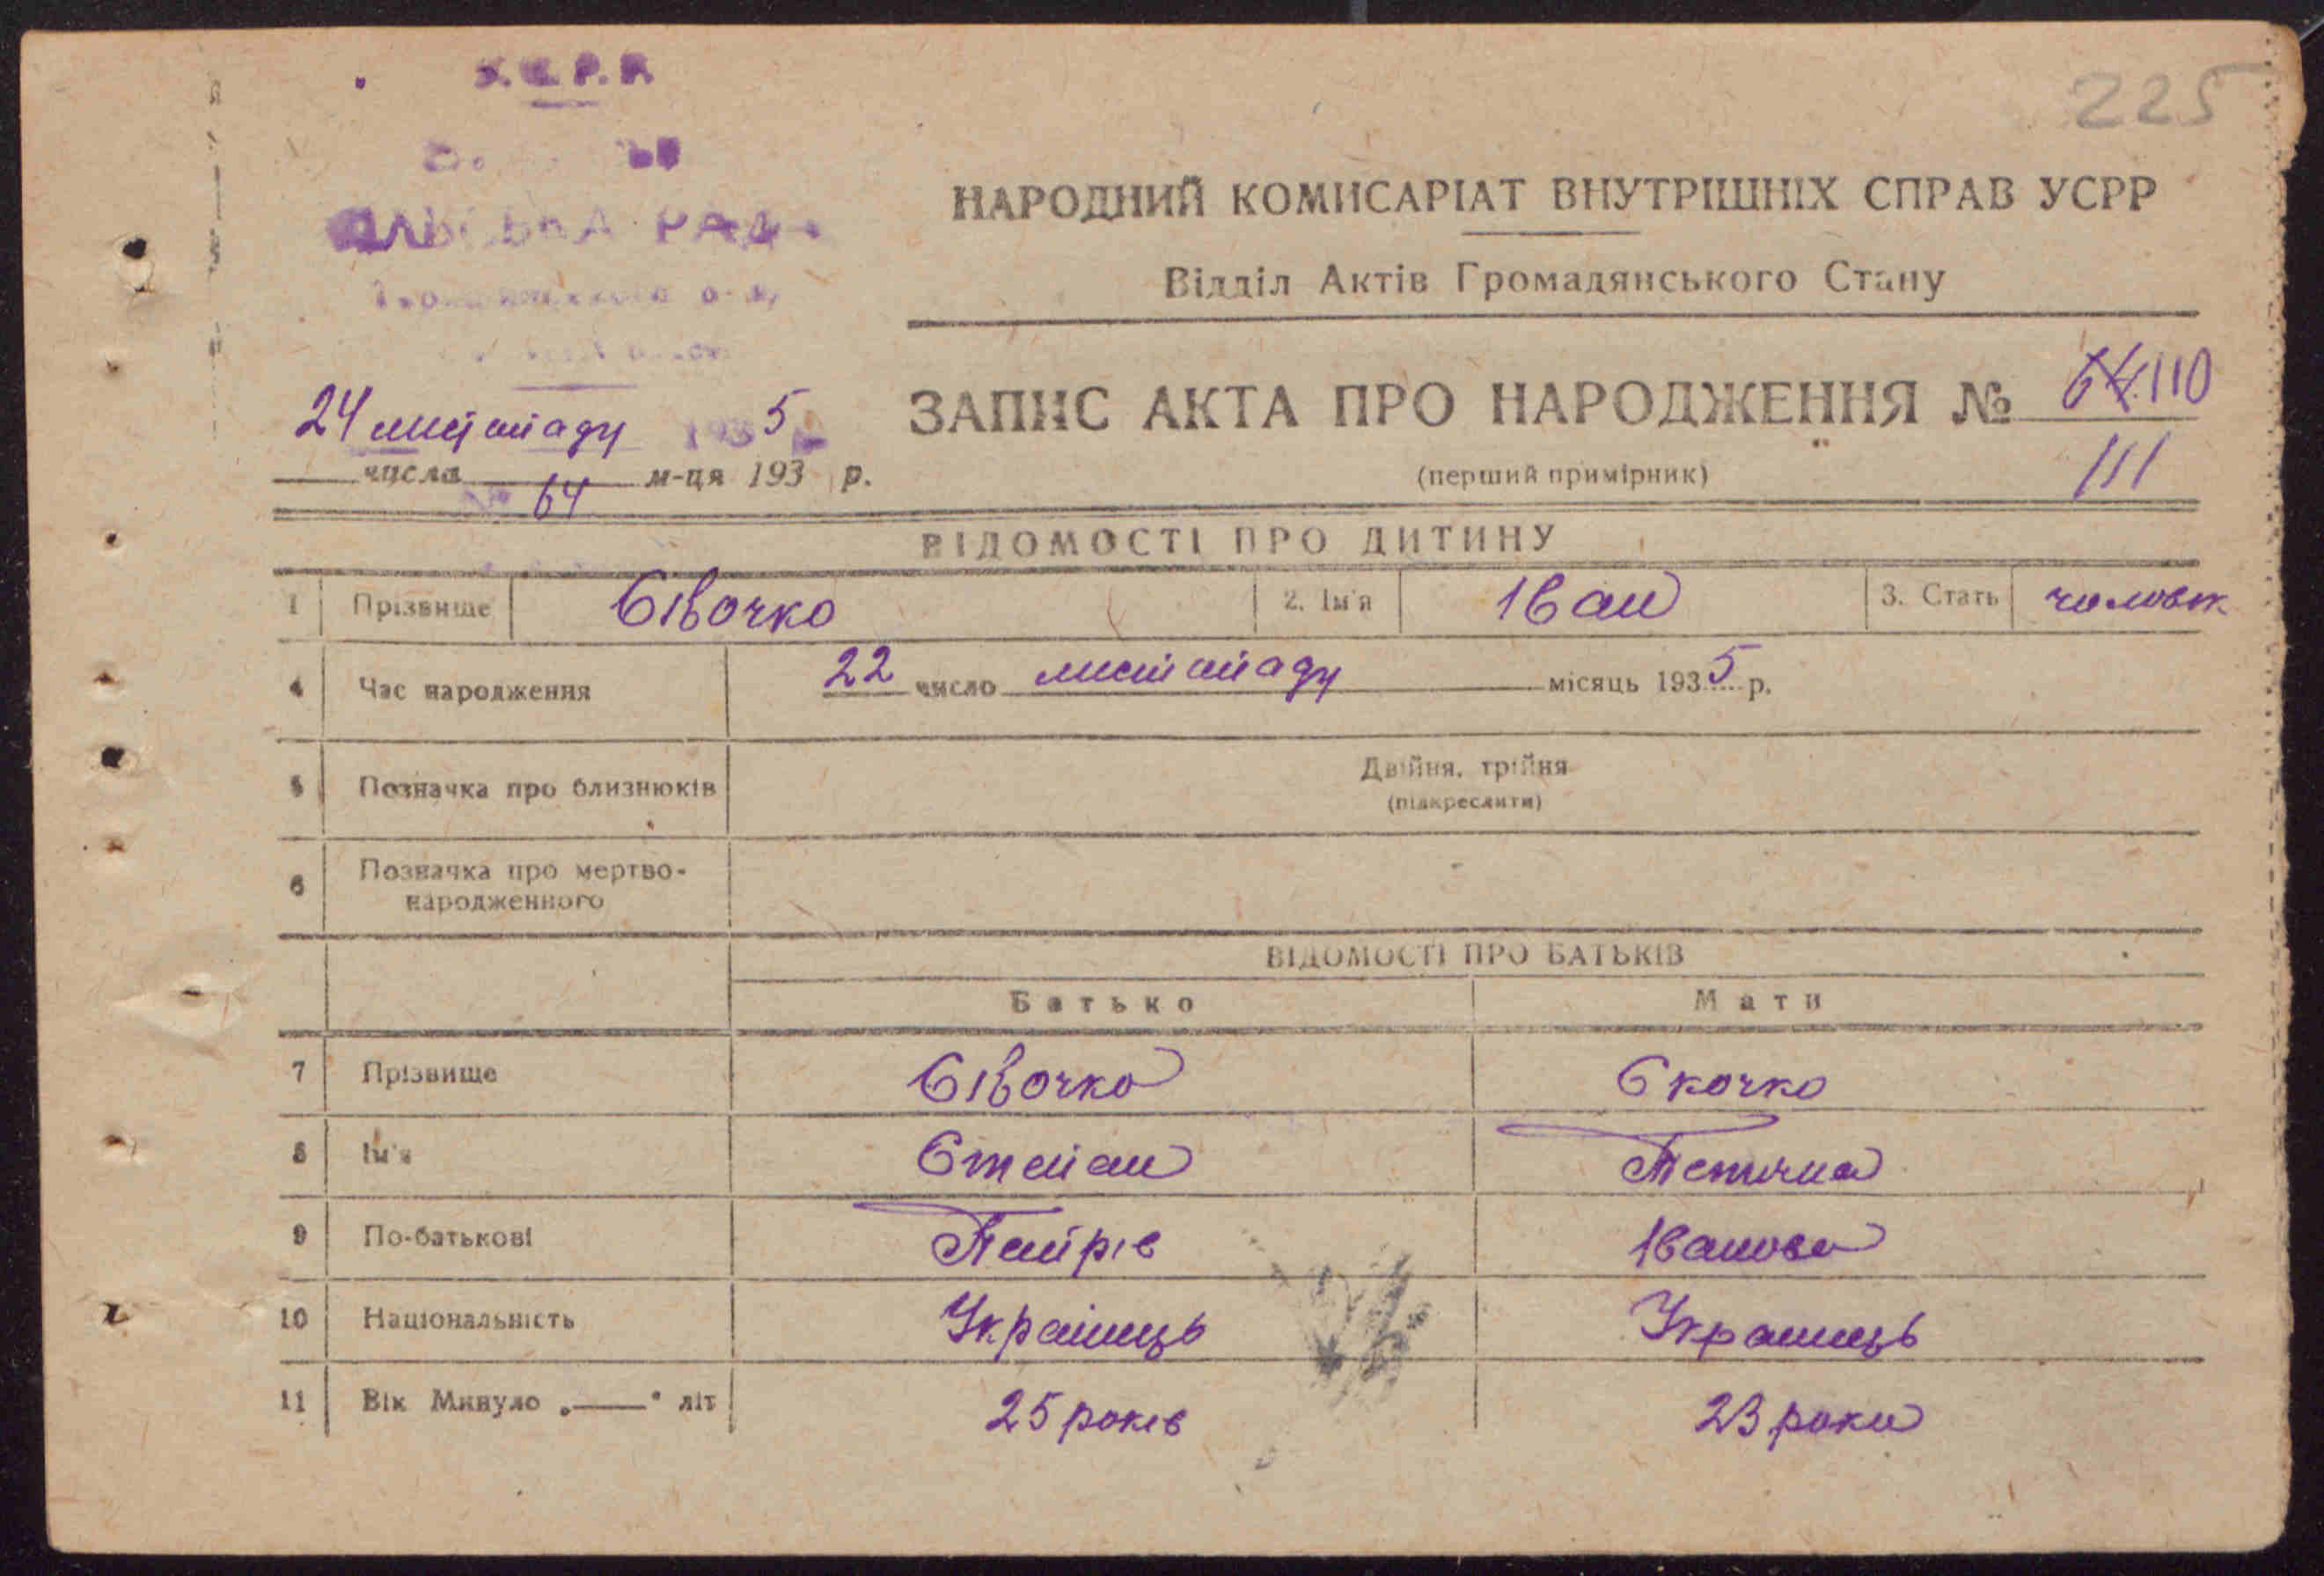 У.С.Р.Р.
225
СІЛЬСЬКА РАДА
НАРОДНИЙ КОМІСАРІАТ ВНУТРІШНІХ СПРАВ УСРР
Відділ Актів Громадянського Стану
24 листопаду 1935
числа м-ця 193 р.
№ 64
ЗАПИС АКТА ПРО НАРОДЖЕННЯ № 64 110
(перший примірник) 111
ВІДОМОСТІ ПРО ДИТИНУ
1 Прізвище Сівочко 2. Ім'я Іван 3. Стать чоловік
4 Час народження 22 число листопаду місяць 1935 р.
5 Позначка про близнюків Двійня, трійня
(підкреслити)
6 Позначка про мертво-
народженного
ВІДОМОСТІ ПРО БАТЬКІВ
Батько Мати
7 Прізвище Сівочко Скочко
8 Ім'я Степан Тетяна
9 По-батькові Петрів Іванова
10 Національність Українець Українець
11 Вік Минуло „——“ літ 25 років 23 роки